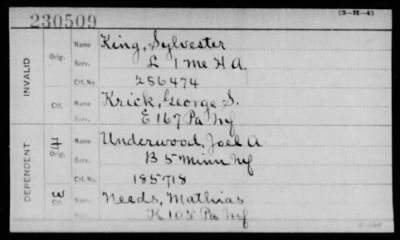 230509
(3-H-4)
INVALID
Orig.
Name King, Sylvester
Serv. L 1 Me H A.
Ctf. No. 256474
Ctf.
Name Krick, George S.
Serv. E 167 Pa Inf
DEPENDENT
Orig.
Name Underwood, Joel A.
Serv. B 5 Minn Inf
Ctf. No. 185718
Ctf.
Name Needs, Mathias
Serv. K 105 Pa Inf